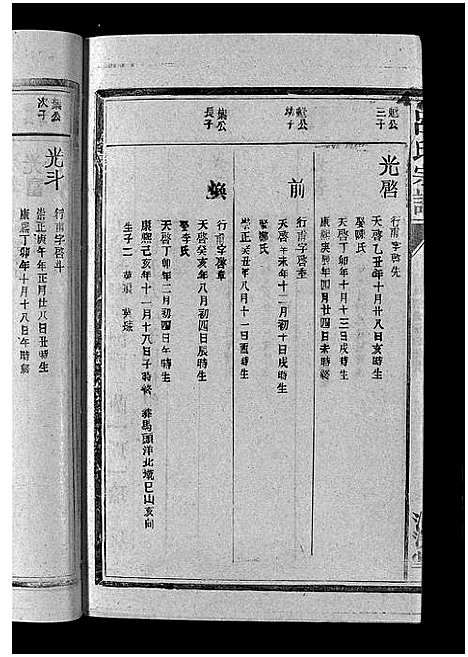 呂氏宗譜
魁公
三子
光啓
行甫字啓先
天啓乙丑年十月廿八日亥時生
娶陳氏
天啓丁卯年十月十三日戌時生
康熙庚辰年四月廿四日未時終
魁公
幼子
前
行甫字啓奎
天啓辛未年十二月初十日戌時生
娶陳氏
崇正癸丑年八月十一日酉時生
葉公
長子
煥
行甫字啓章
天啓癸亥年八月初四日辰時生
娶李氏
天啓丁卯年二月初四日午時生
康熙己亥年十一月十八日子時終 葬馬頭洋北壠巳山亥向
生子二
葉公
次子
光斗
行甫字啓斗
崇正庚午年正月廿八日丑時生
康熙丁卯年十月十八日午時終